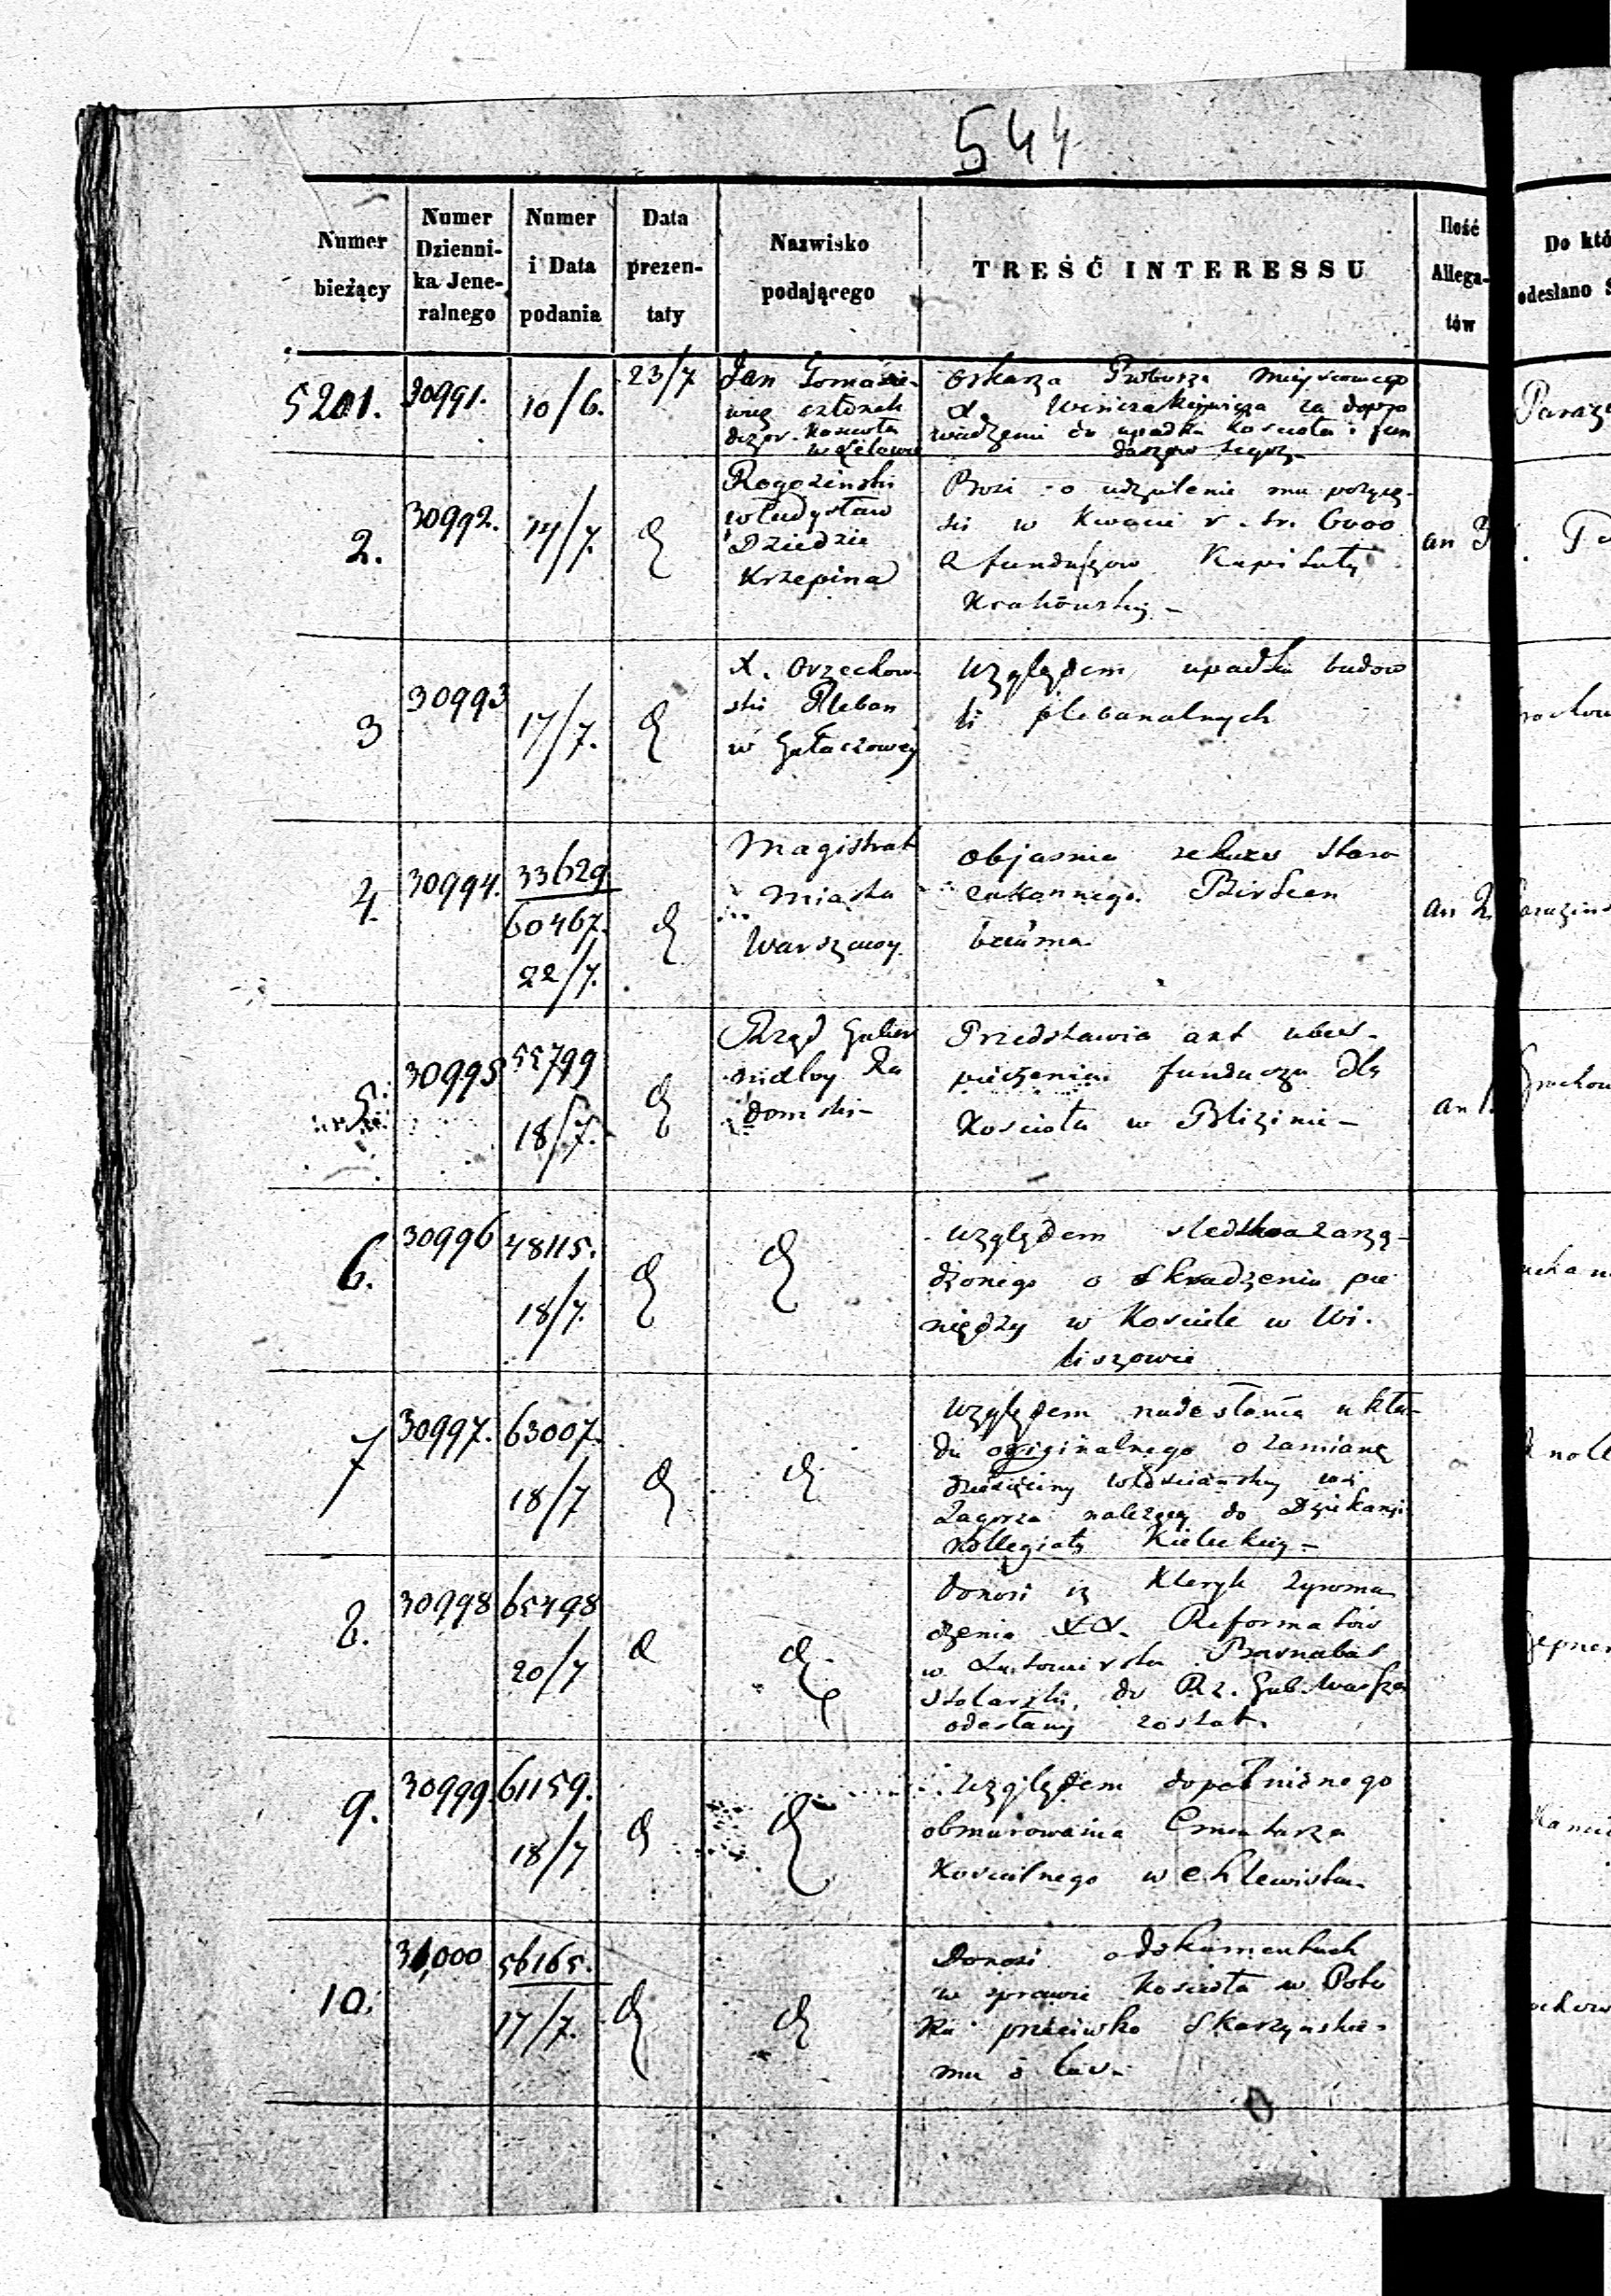 544
Numer bieżący
Numer Dzienni-ka Jene-ralnego
Numer i Data podania
Data prezen-taty
Nazwisko podającego
TREŚĆ INTERESSU
Ilość Allega-tów
Do któ
odesłano
5201. 30991. 10/6. 23/7
Jan Tomasie-
wicz członek
dozor. Kościoła
w Lelowie
Oskarza Proboszcza miejscowego
X. za dopro
wadzenie do upadku Kościoła i fun
duszów tegoż
2. 30992. 14/7.
Rogoziński
Władysław
Dziedzic
Krzepina
Prosi o udzielenie mu pożycz-
ki w kwocie r. sr. 6000
z funduszów Kapituły
Krakowskiej –
an 3
3 30993 17/7.
X. Orzechow-
ski Pleban
w Gałaczowej
Względem upadku budow
li plebanalnych
4. 30994. 33629
60467.
22/7.
Magistrat
Miasta
Warszawy
Objaśnia rekurs Staro
zakonnego Birsten
bauma
an 2.
5. 30995 55799
18/7.
Rząd Guber
nialny Ra
domski –
Przedstawia akt ubez-
pieczenia funduszu dla
Kościoła w Bliżinie –
an 1.
6. 30996 48115.
18/7.
Względem śledztwa zarzą-
dzonego o skradzenie pie
niędzy w Kościele w Wi-
liszowie
7 30997. 63007.
18/7
Względem nadesłania ukła-
du originalnego o zamianę
dziesięciny włościańskiej wsi
Zagórza należącej do Dziekanji
Kollegiaty Kieleckiej –
8. 30998 65498
20/7
Donosi iż Kleryk Zgroma
dzenia XX. Reformatów
w Lutomiersku Barnabas
Stolarski, do Rz. Gub. Warsza
odesłany został.
9. 30999. 61159.
18/7
Względem dopełnionego
obmurowania Cmentarza
Kościelnego w Chlewiskach
10. 31,000 56165.
17/7.
Donosi o dokumentach
w sprawie Kościoła w Poto
ku przeciwko Skarzynskie-
mu o las –